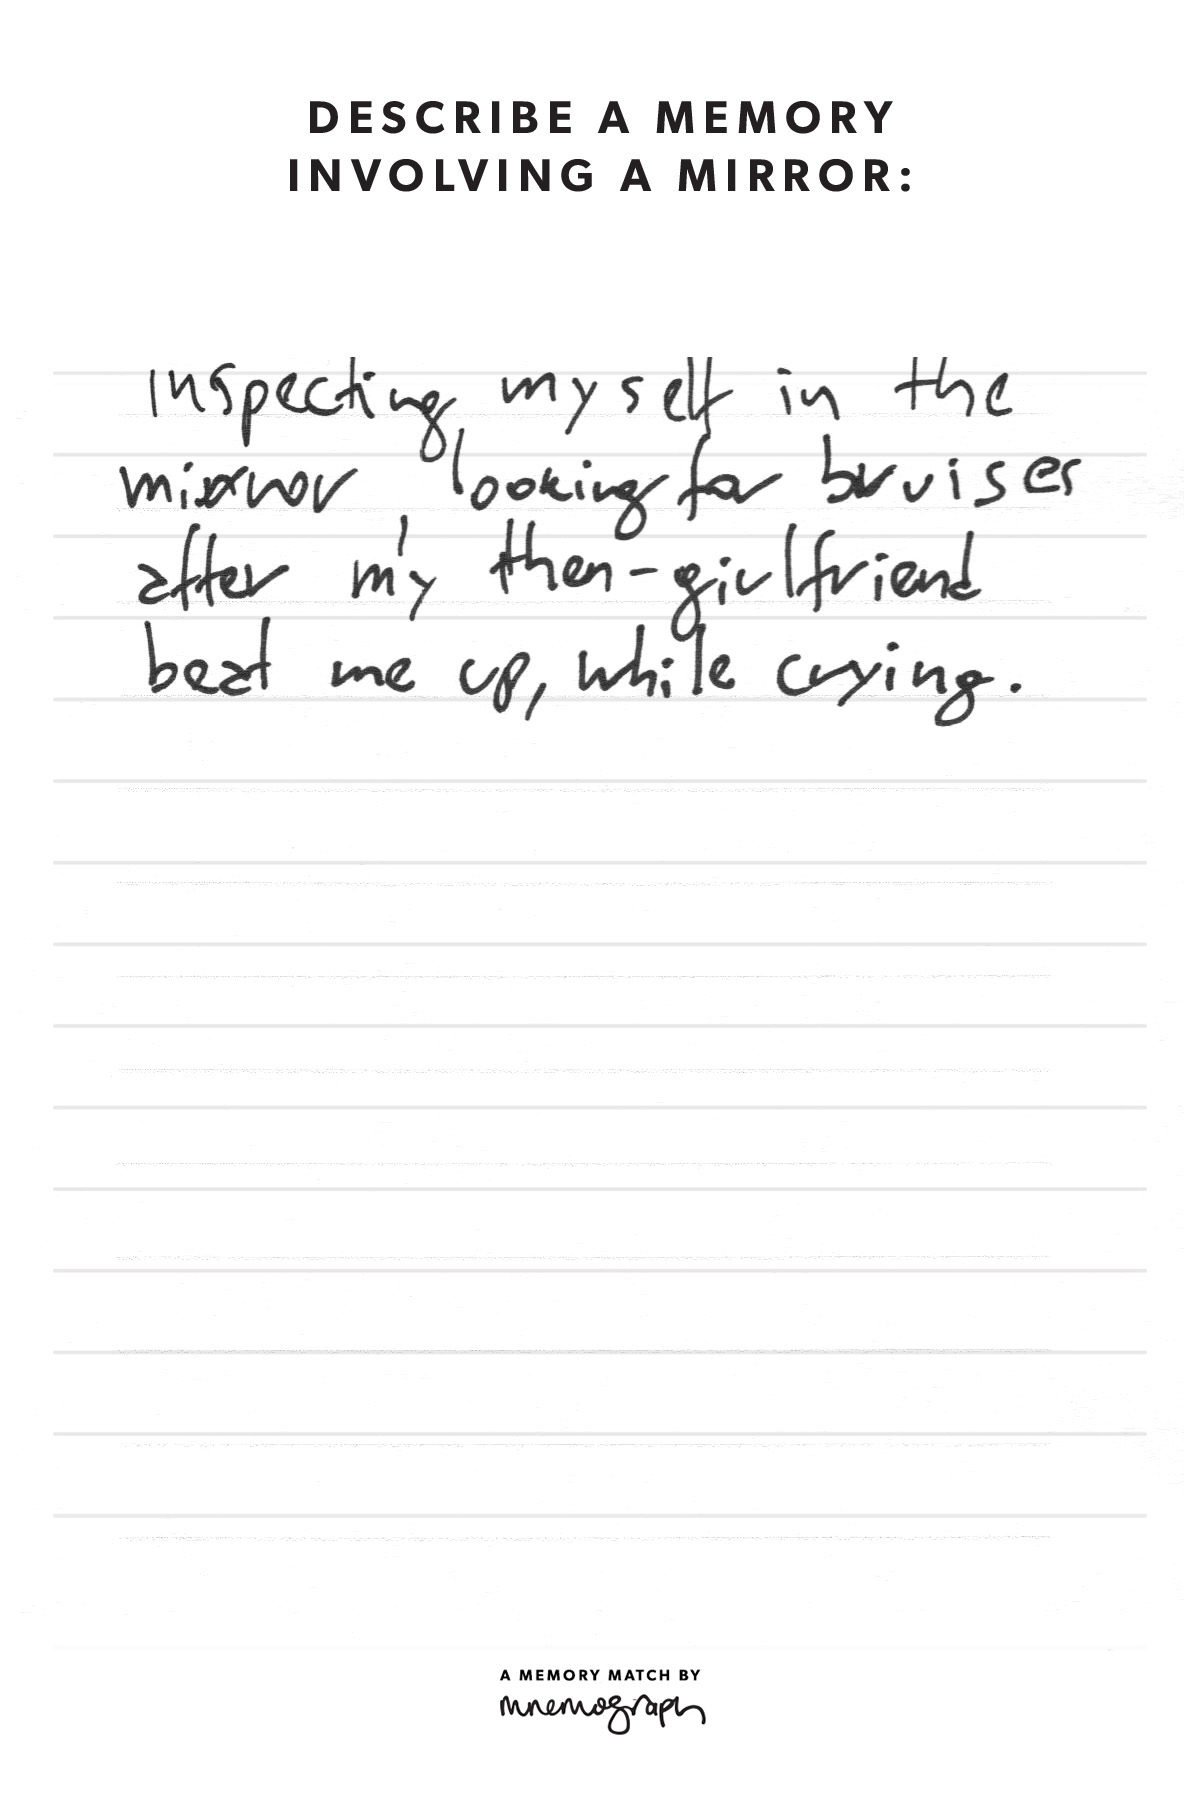 DESCRIBE A MEMORY
INVOLVING A MIRROR:
Inspecting myself in the
mirror looking for bruises
after my then-girlfriend
beat me up, while crying.
A MEMORY MATCH BY
mnemograph